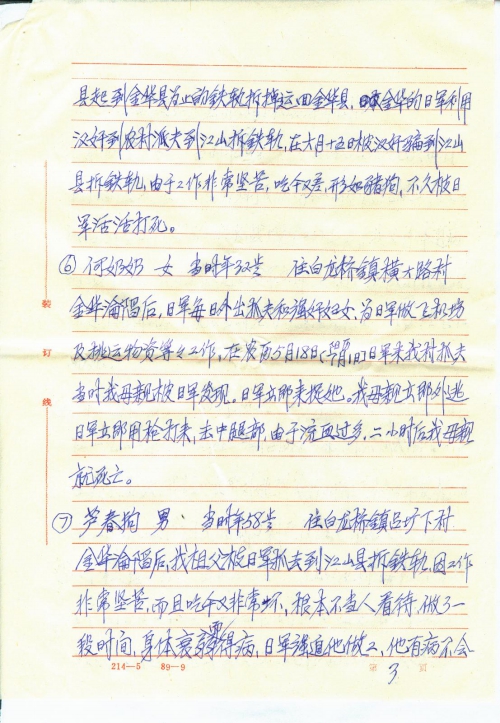 县起到金华县为止的铁轨拆掉运回金华县，金华的日军利用
汉奸到农村派夫到江山拆铁轨，在六月十五日被汉奸骗到江山
县拆铁轨，由于工作非常坚苦，吃食差，形如猪狗，不久被日
军活活打死。
⑥ 何奶奶 女 当时年32岁 住白龙桥镇横大路村
金华沦陷后，日军每日外出抓夫和强奸妇女，为日军做飞机场
及搬运物资等々工作，在农历5月18日(7月1日)日军来我村抓夫
当时我母亲被日军发现，日军立即来捉她。我母亲立即外逃
日军立即用枪打来，击中腿部，由于流血过多，二小时后我母亲
就死亡。
⑦ 芦春狗 男 当时年58岁 住白龙桥镇吕圩下村
金华沦陷后，我祖父被日军抓去到江山县拆铁轨，因工作
非常坚苦，而且吃食又非常坏，根本不当人看待，做了一
段时间，身体衰弱得病，日军强迫他做工，他有病不会
214—5 89—9 第 3 页
装
订
线